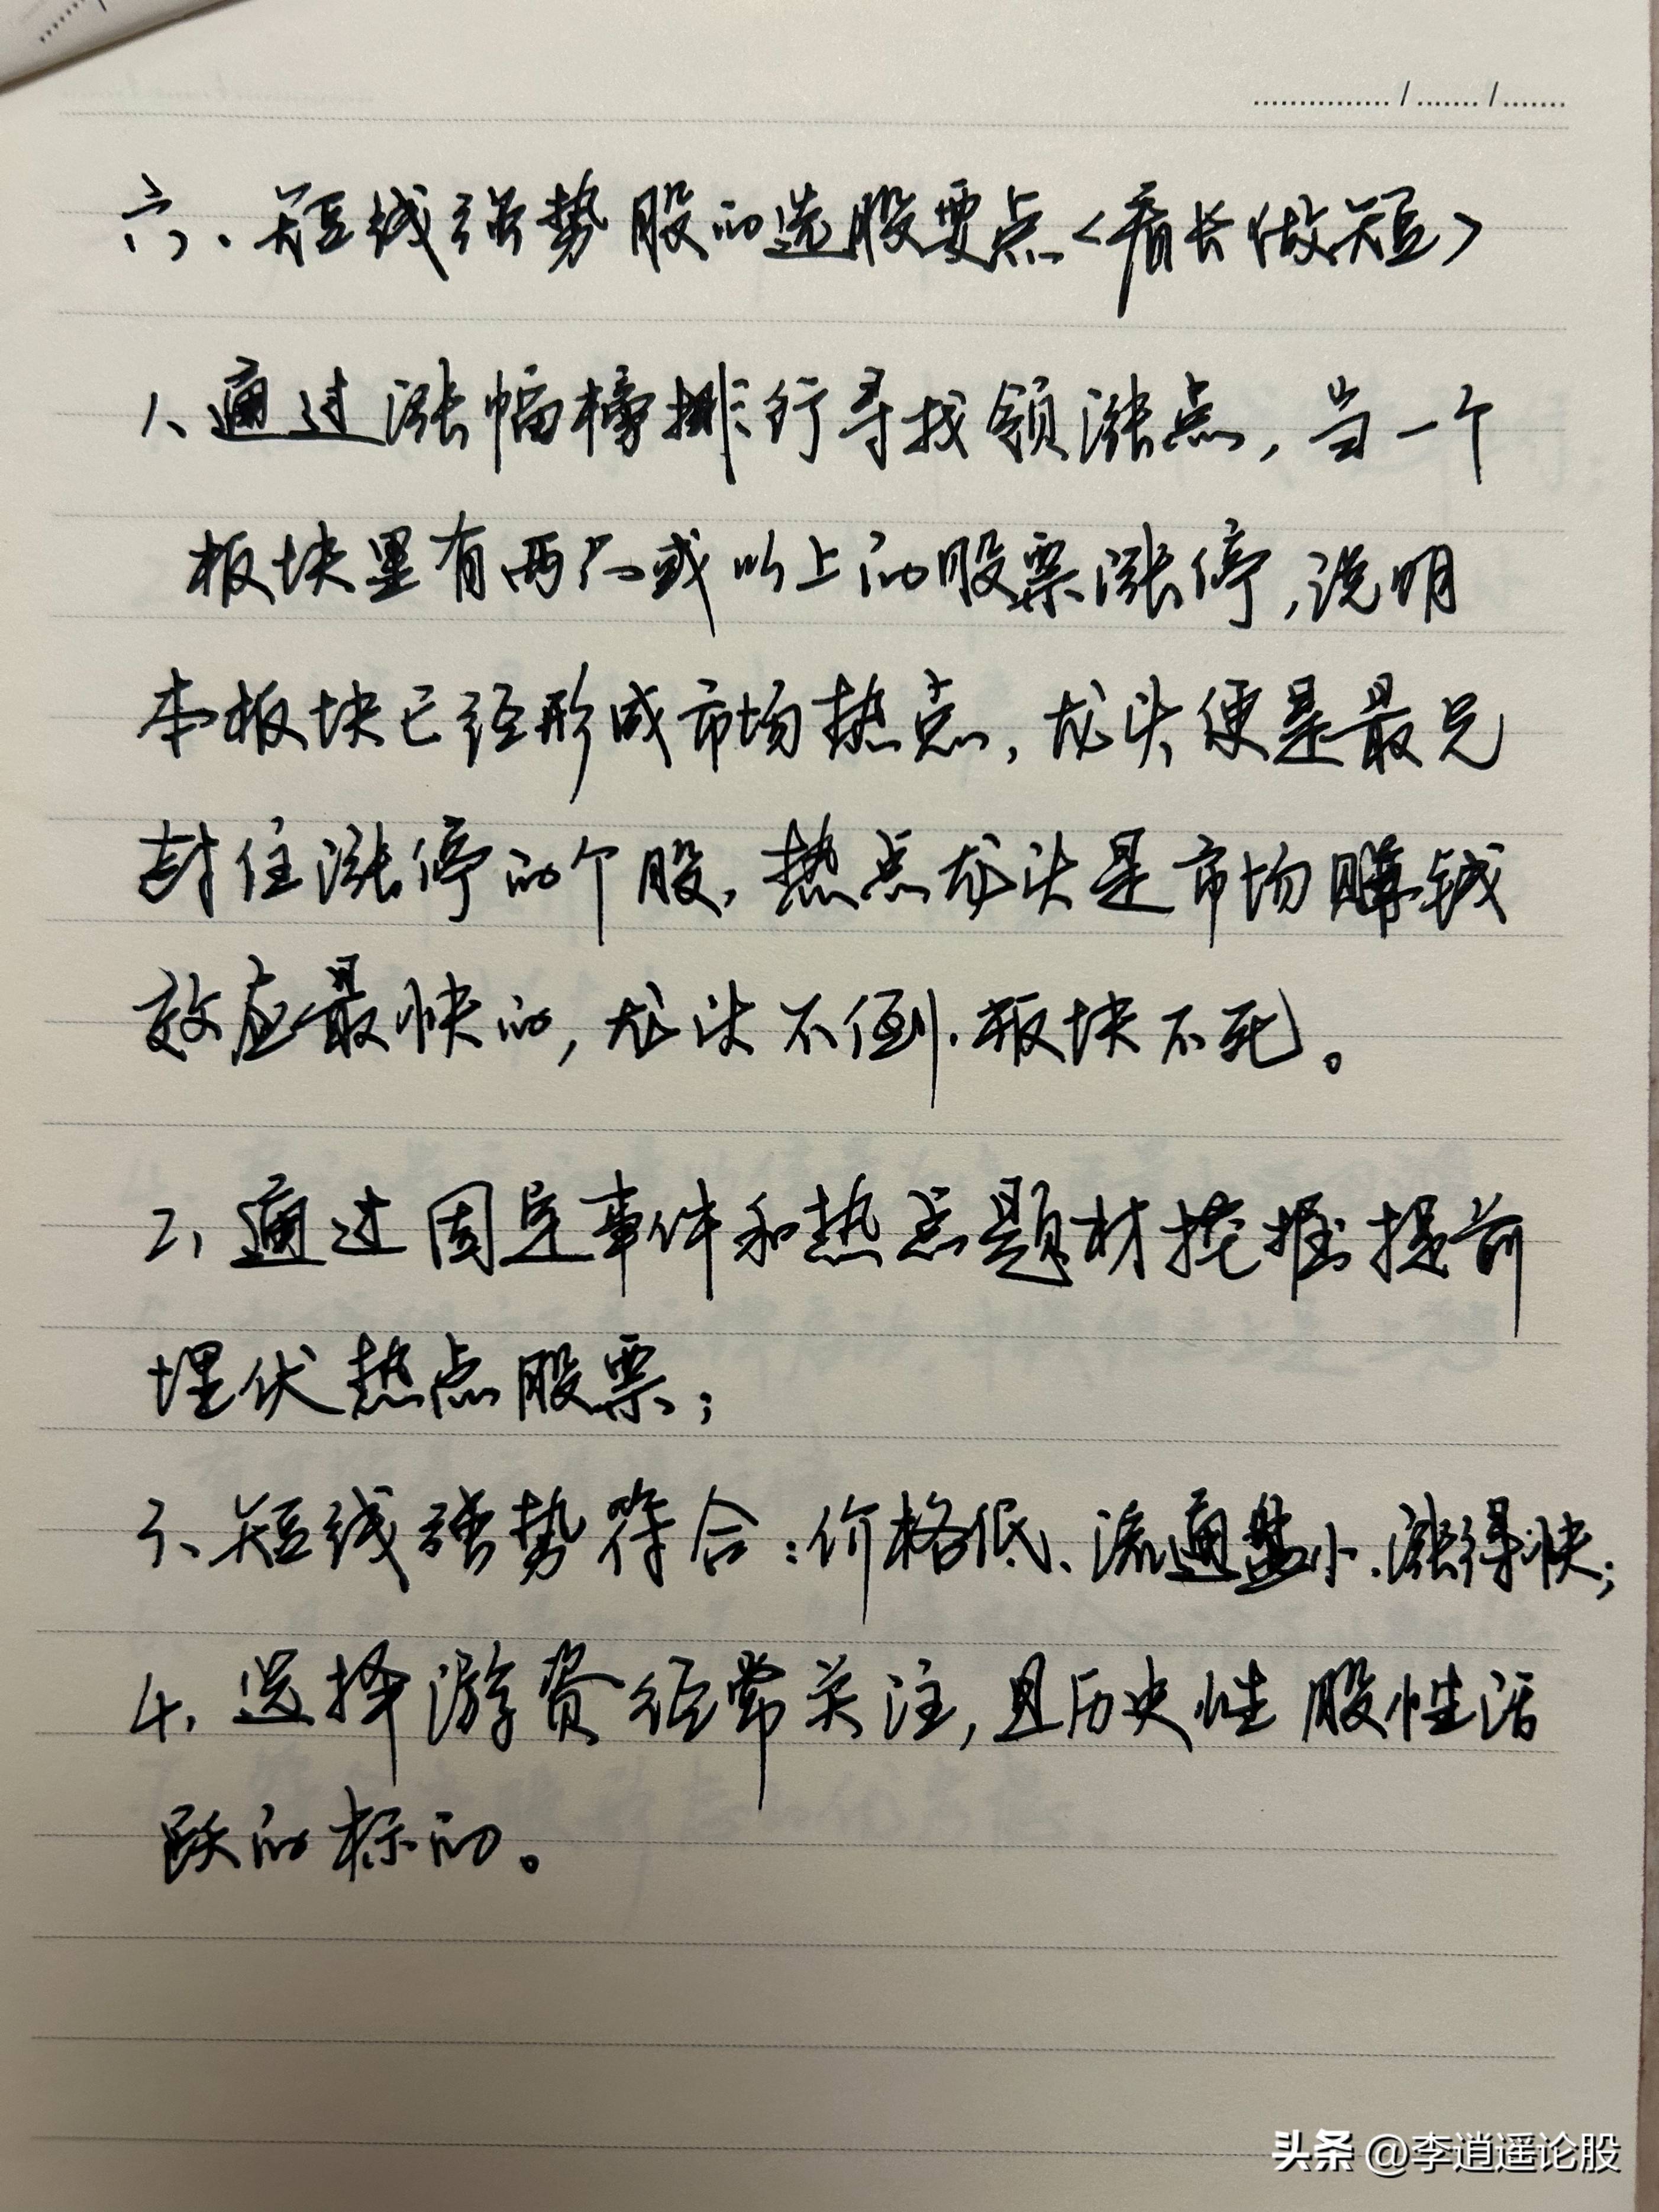 六、短线强势股的选股要点<看长做短>
1、通过涨幅榜排行寻找领涨点,当一个
板块里有两只或以上的股票涨停,说明
本板块已经形成市场热点,龙头便是最先
封住涨停的个股,热点龙头是市场赚钱
效应最快的,龙头不倒.板块不死。
2、通过固定事件和热点题材挖掘提前
埋伏热点股票;
3、短线强势符合:价格低、流通盘小.涨得快;
4、选择游资经常关注,且历史性股性活
跃的标的。
头条 @李逍遥论股